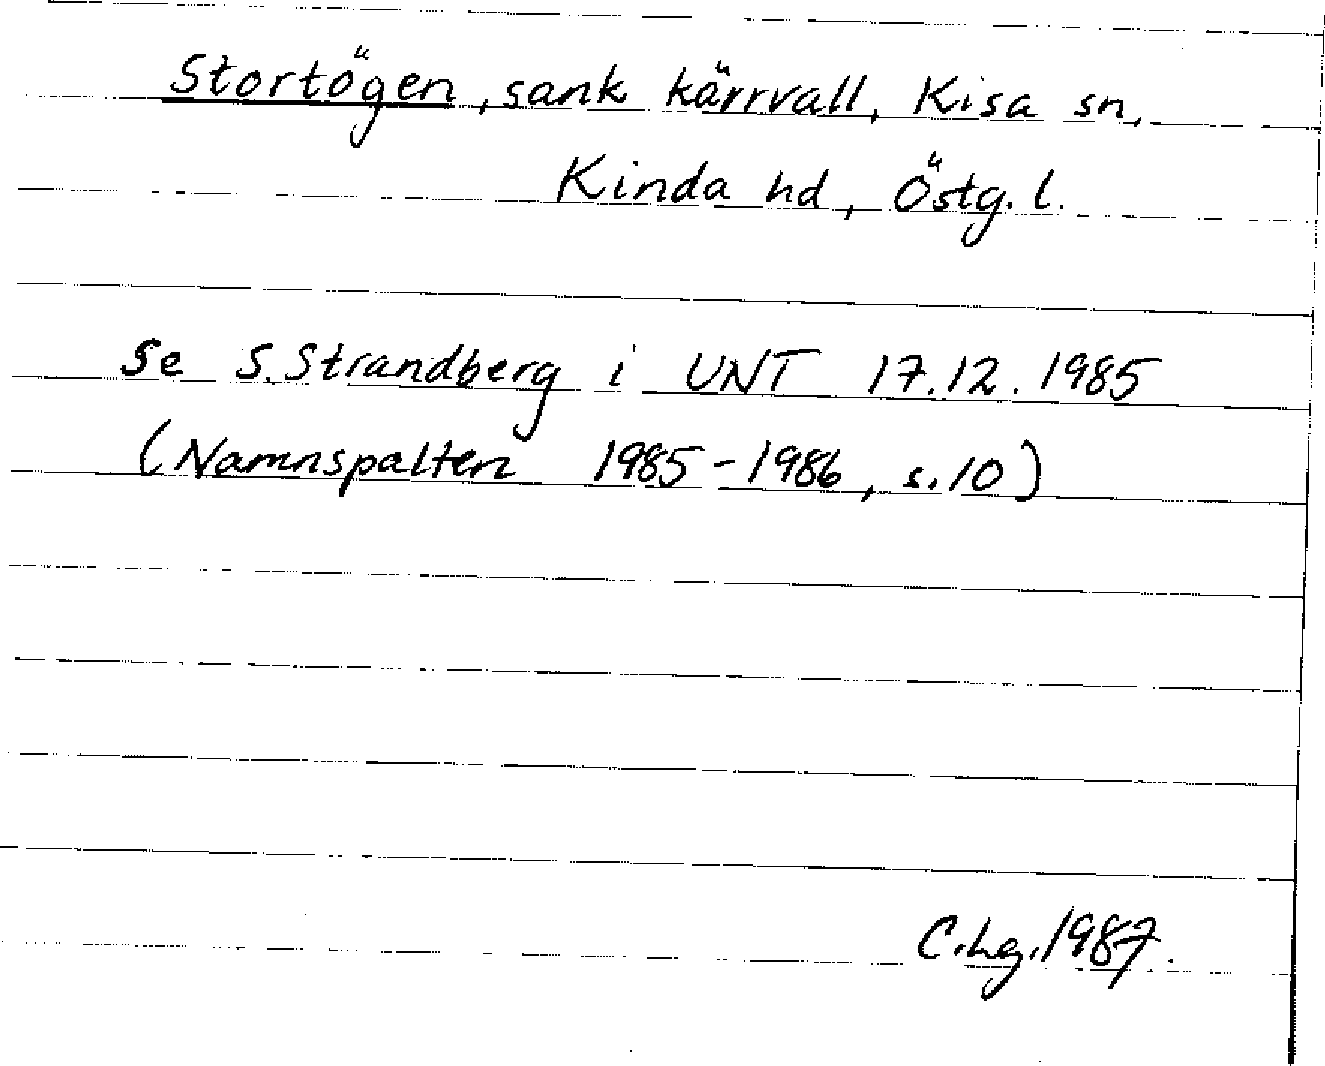 Stortögen, sank kärrvall, Kisa sn,
Kinda hd, Östg. l.
Se S. Strandberg i UNT 17.12.1985
(Namnspalten 1985-1986, s.10)
C.Lg.1987.